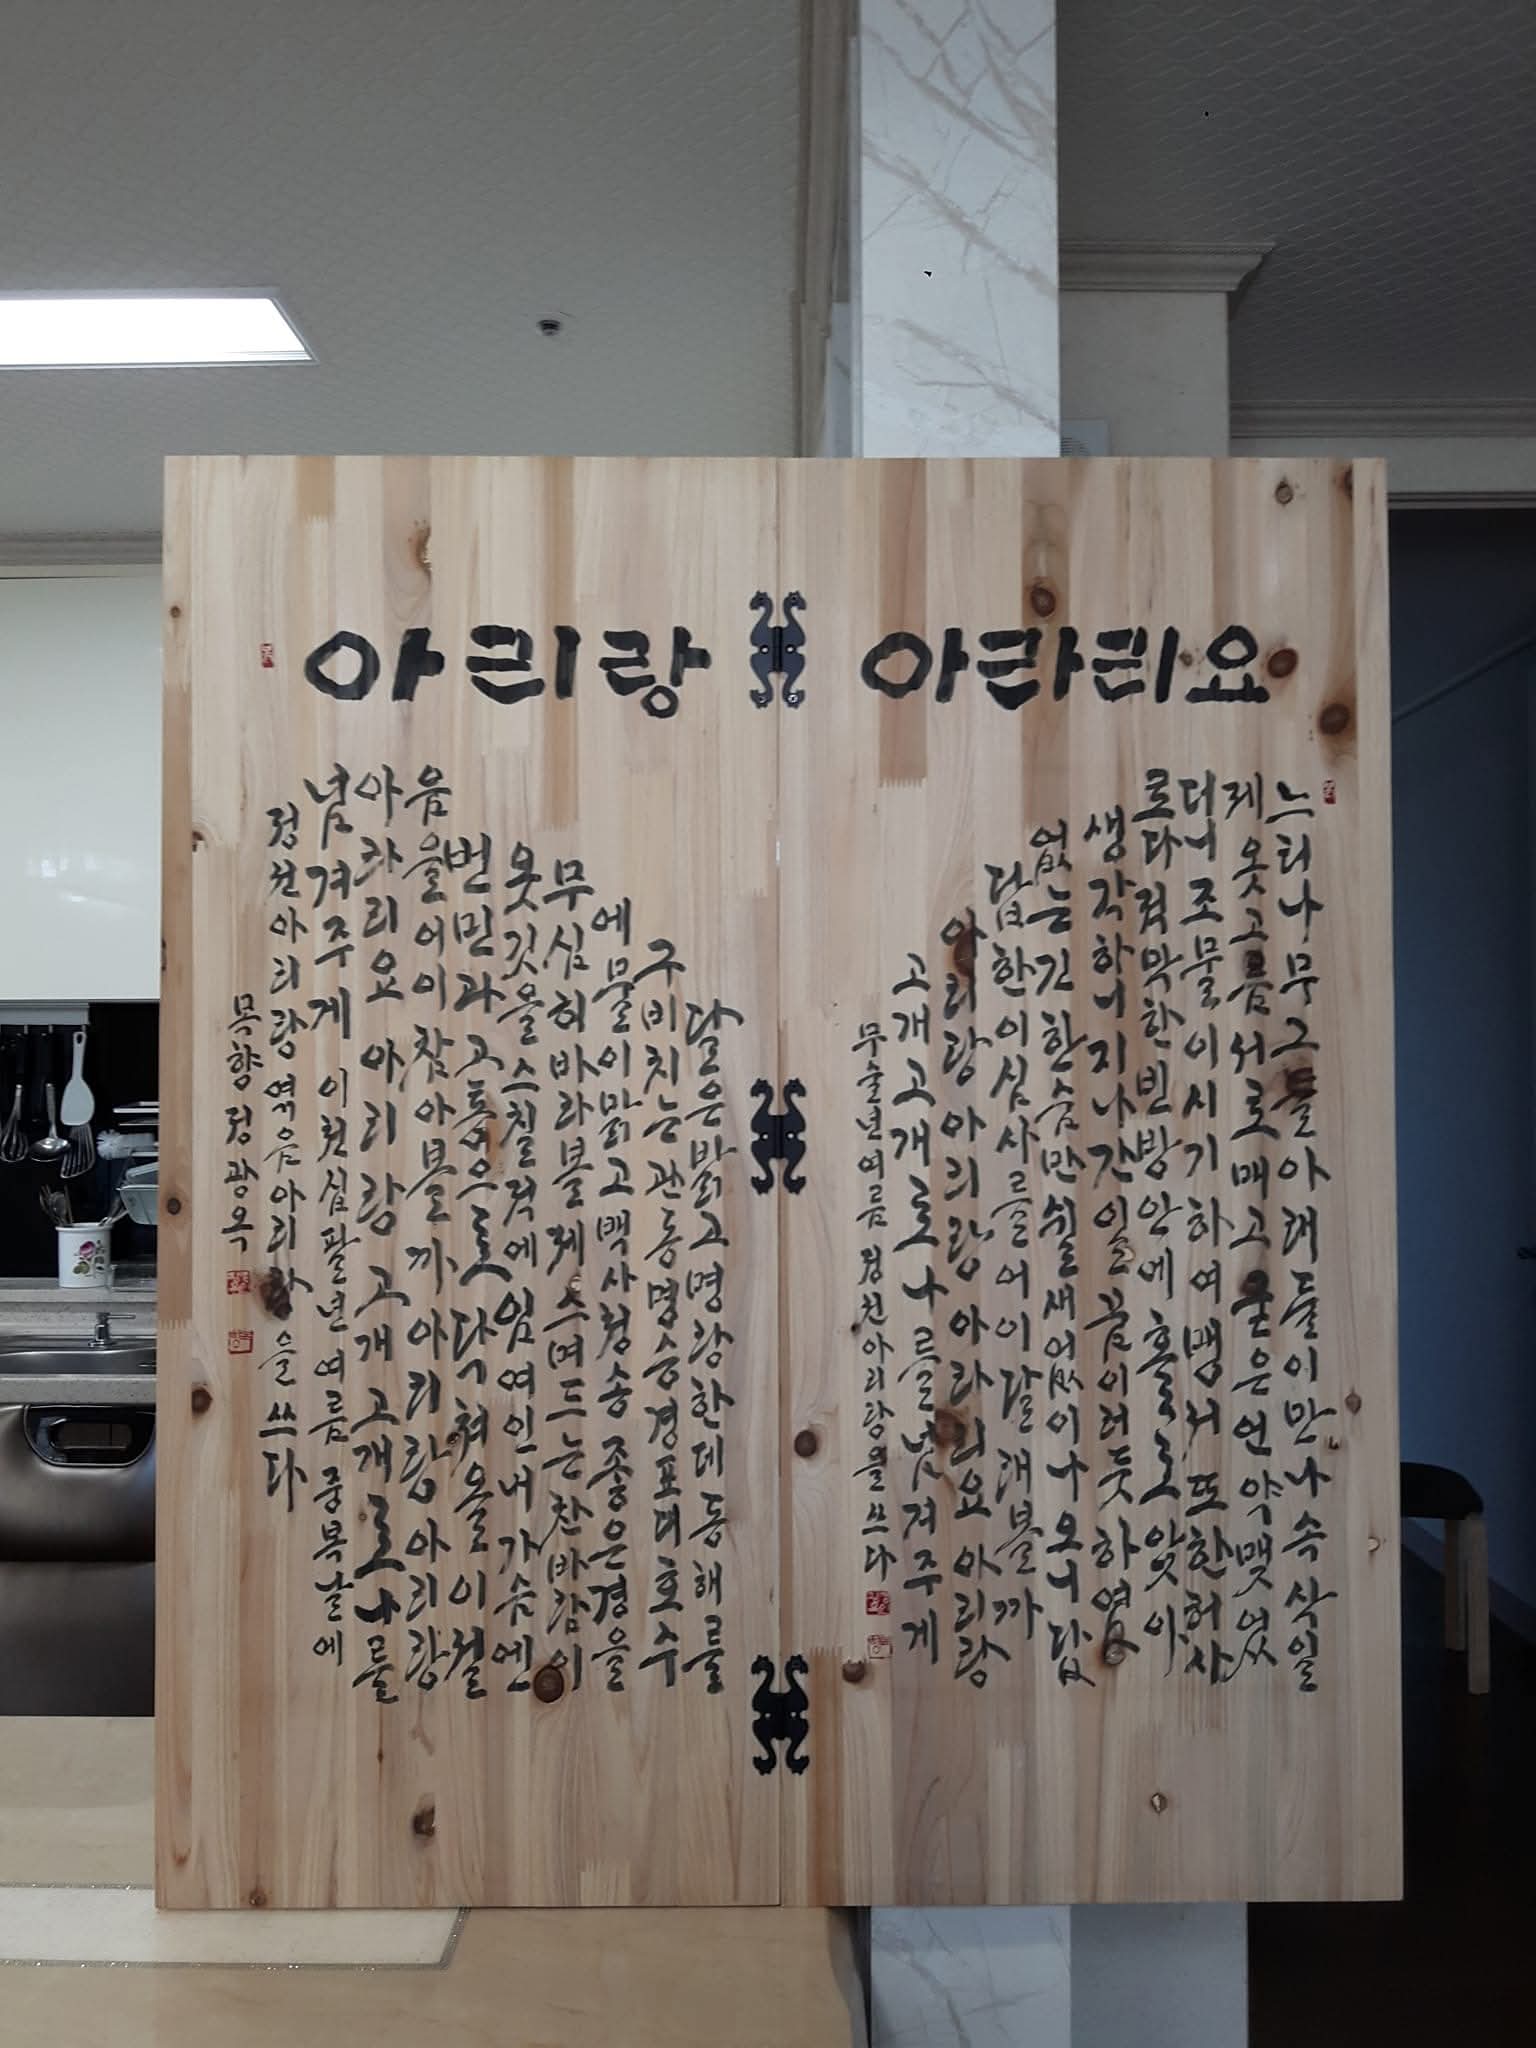 아리랑 아라리요
느티나무 그늘 아래 둘이 만나 속삭일
제 옷고름 서로 매고 굳은 언약 맺었
더니 조물이 시기하여 맹서 또한 허사
로다 적막한 빈 방안에 홀로 앉아
생각하니 지나간 일 꿈이런듯 하염
없는 긴 한숨만 쉴새없이 나오니 답
답한 이 심사를 어이 달래볼까
아리랑 아리랑 아라리요 아리랑
고개고개로 나를 넘겨주게
무술년 여름 정선아리랑을 쓰다
달은 밝고 명랑한데 동해를
구비치는 관동명승 경포대 호수
에 물이 맑고 백사청송 좋은 경을
무심히 바라볼제 스며드는 찬바람이
옷깃을 스칠적에 임여인 내 가슴엔
번민과 고통으로 다 거쳐 울이 설
음을 어이 참아볼까 아리랑 아리랑
아라리요 아리랑 고개고개로 나를
넘겨주게 이천십팔년 여름 중복날에
정선아리랑 엮음아리랑을 쓰다
목향 정광옥